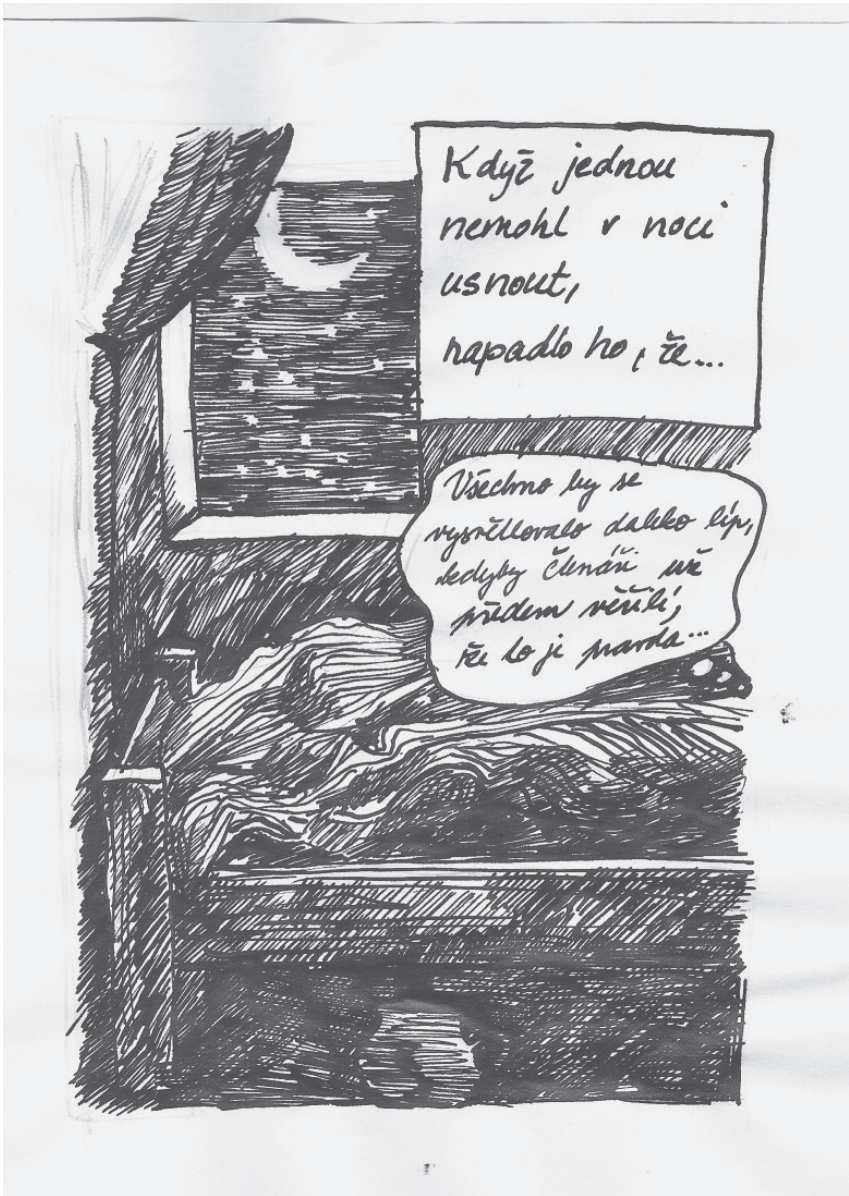 Když jednou
nemohl v noci
usnout,
napadlo ho, že...
Všechno by se
vysvětlovalo daleko líp,
kdyby čtenáři už
předem věřili,
že to je pravda...